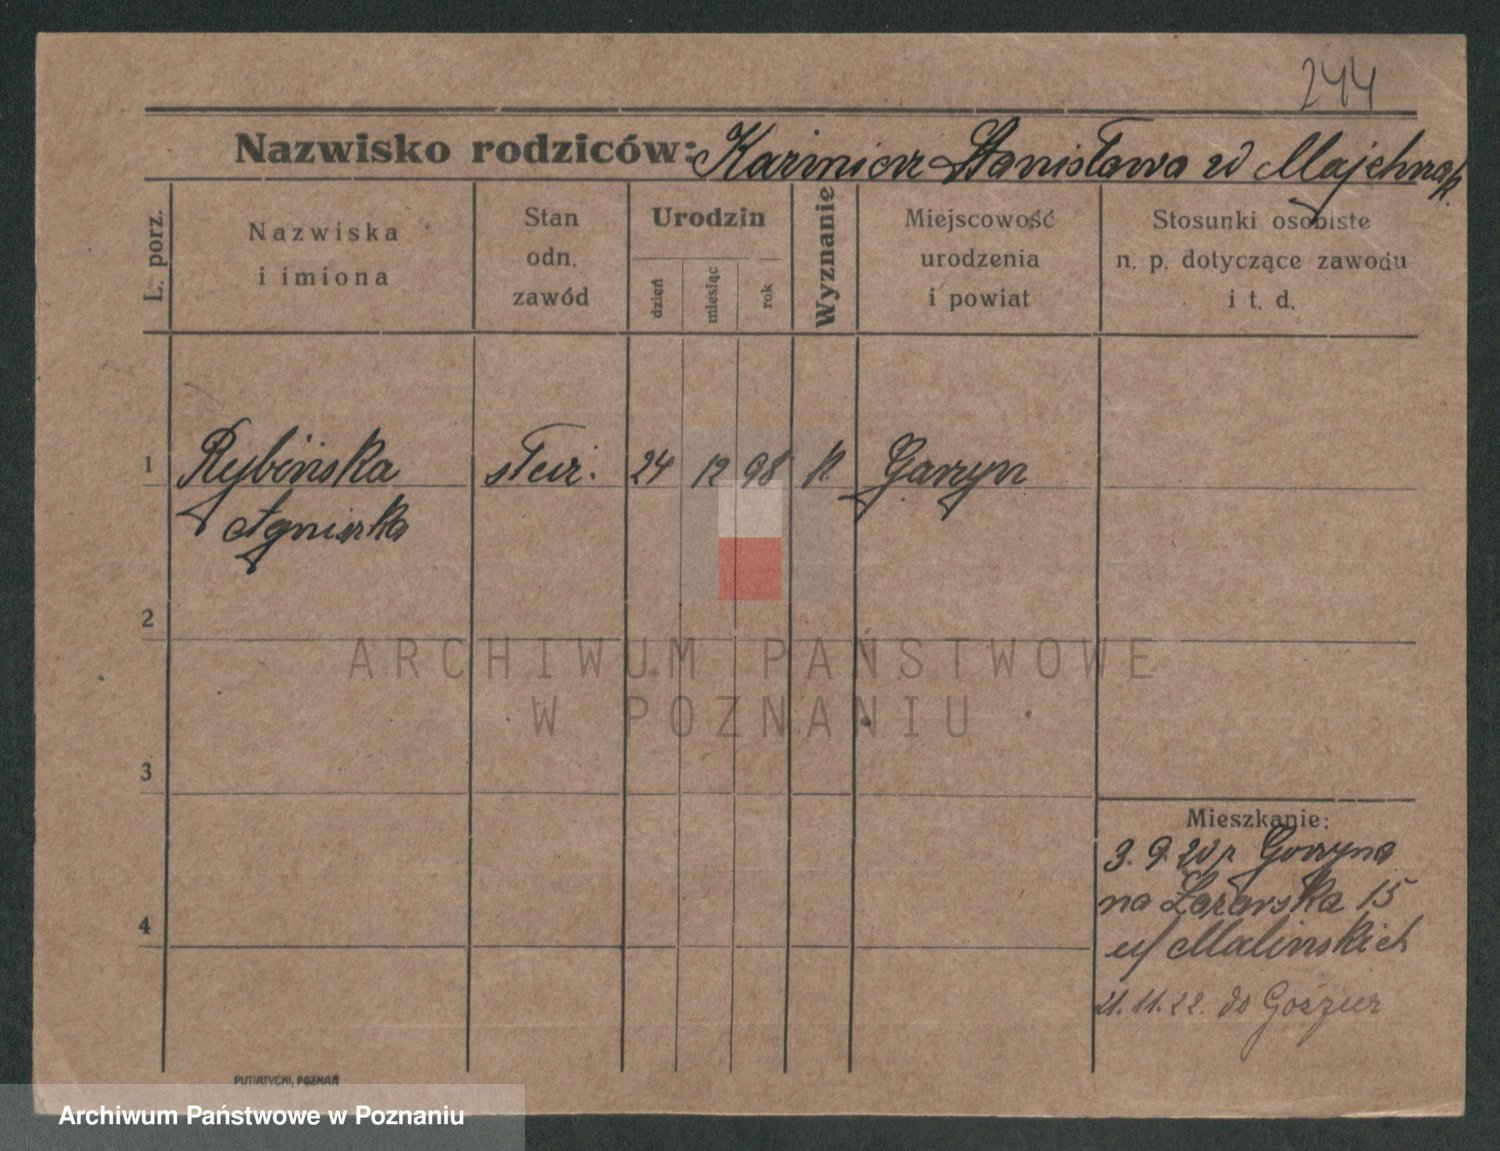 244
Nazwisko rodziców: Kazimierz Stanisława zd Majchrzak
L. porz.
Nazwiska
i imiona
Stan
odn.
zawód
Urodzin
dzień
miesiąc
rok
Wyznanie
Miejscowość
urodzenia
i powiat
Stosunki osobiste
n. p. dotyczące zawodu
i t. d.
1 Rybińska służ. 24 12 98 k. Garzyn
Agnieszka
2
ARCHIWUM PAŃSTWOWE
W POZNANIU
3
Mieszkanie:
3. 9. 20 z Garzyna
na
15
4
u/ Malińskich
21. 11. 22. do
PUTIATYCKI, POZNAŃ
Archiwum Państwowe w Poznaniu